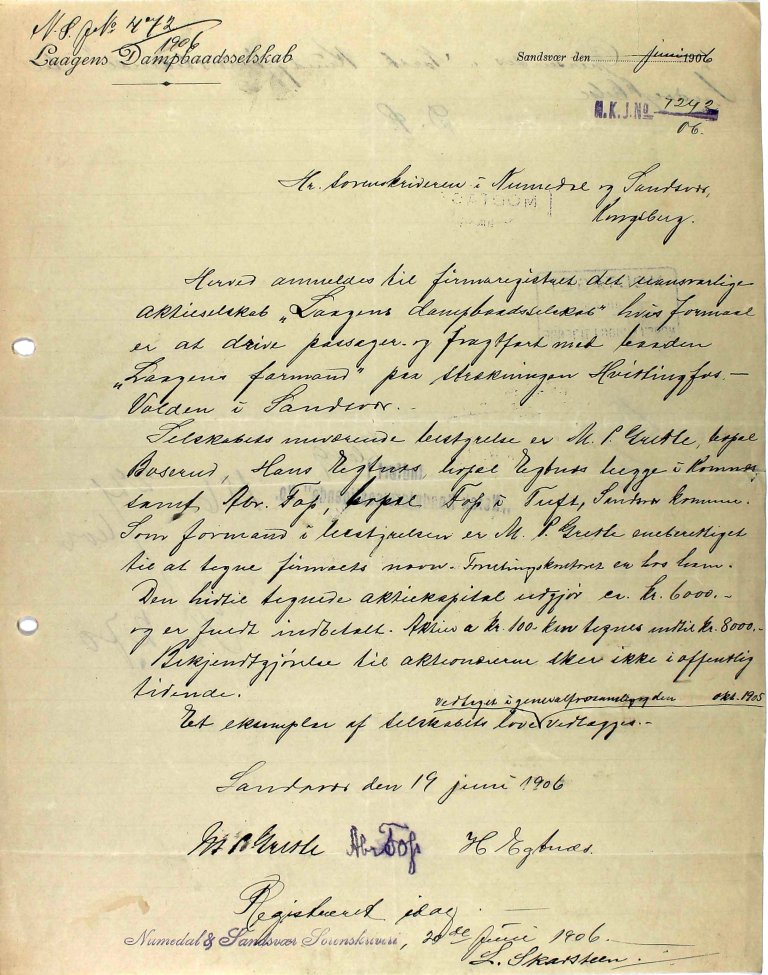 N. S. J No 472
1906
Laagens Dampbaadsselskab
Sandsvær den juni 1906
N.K.J.No 1242
06.
Hr. Sorenskriveren i Numedal og Sandsvær,
Kongsberg.
Herved anmeldes til firmaregistret det uansvarlige
aktieselskab „Laagens dampbaadsselskab" hvis formaal
er at drive passager- og fragtfart med baaden
„Laagens formand" paa strækningen Hvittingfos –
Volden i Sandsvær. –
Selskabets nuværende bestyrelse er M. P. Grette, bopæl
Boserud, Hans Egtnæs bopæl Egtnæs begge i Komnæs
samt Abr. Fop, bopæl Fop i Tuft, Sandsvær kommune.
Som formand i bestyrelsen er M. P. Grette eneberettiget
til at tegne firmaets navn. Forretningskontoret er hos ham.
Den hidtil tegnede aktiekapital udgjør ca. kr. 6000. –
og er fuldt indbetalt. Aktier a kr. 100 kan tegnes indtil kr. 8000. –
Bekjendtgjørelse til aktionærerne sker ikke i offentlig
tidende.
vedtaget i generalforsamling den okt. 1905
Et eksemplar af selskabets love vedlægges. –
Sandsvær den 19 juni 1906
M P Grette Abr Fop H Egtnæs.
Registreret idag. –
Numedal & Sandsvær Sorenskriveri, 20de Juni 1906. –
L. Skarsteen